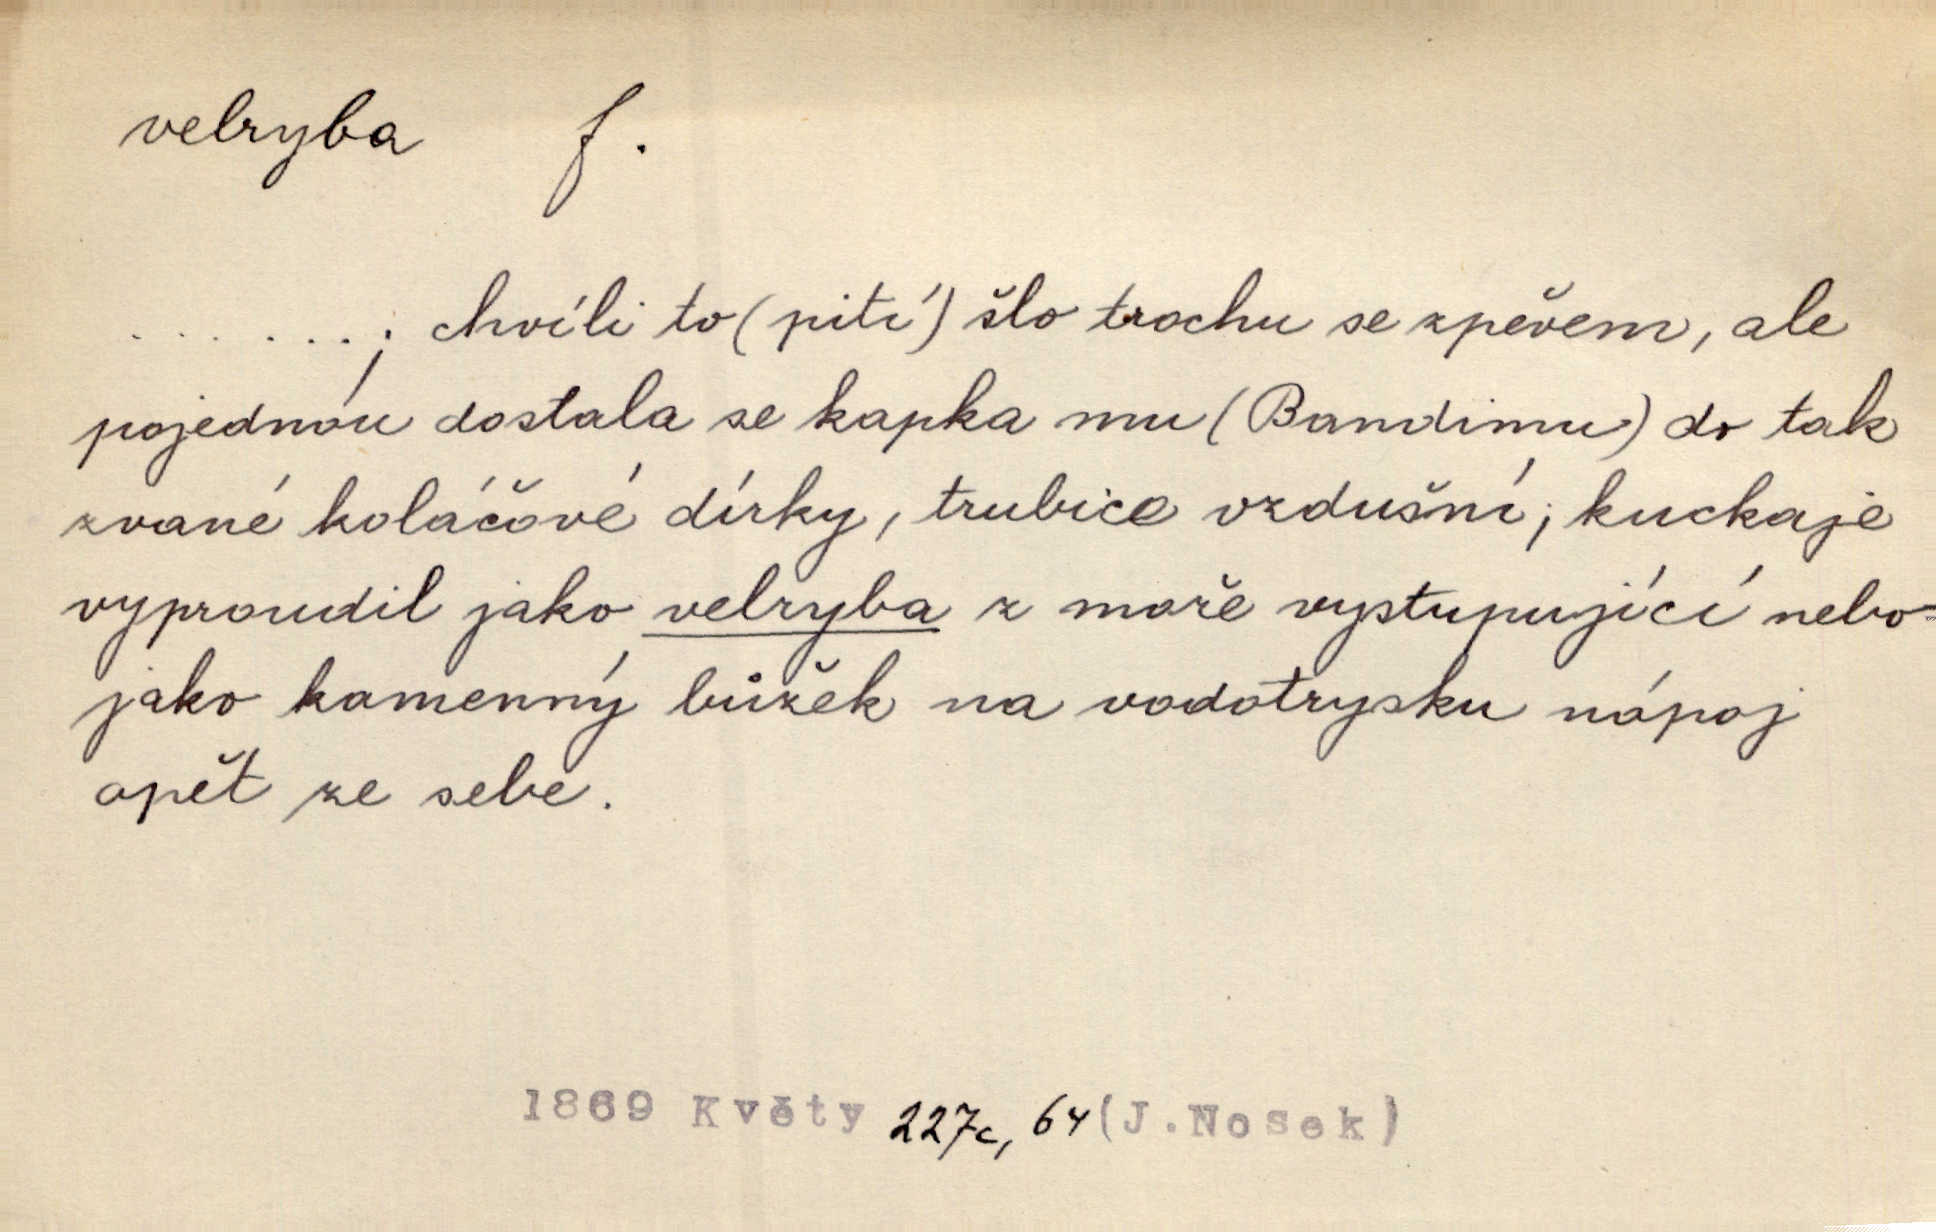 velryba f.
........; chvíli to (pití) šlo trochu se zpěvem, ale
pojednóu dostala se kapka mu (Bandimu) do tak
zvané koláčové dírky, trubice vzdušní; kuckaje
vyproudil jako velryba z moře vystupující nebo
jako kamenný bůžek na vodotrysku nápoj
opět ze sebe.
1869 Květy 227c, 64 (J. Nosek)